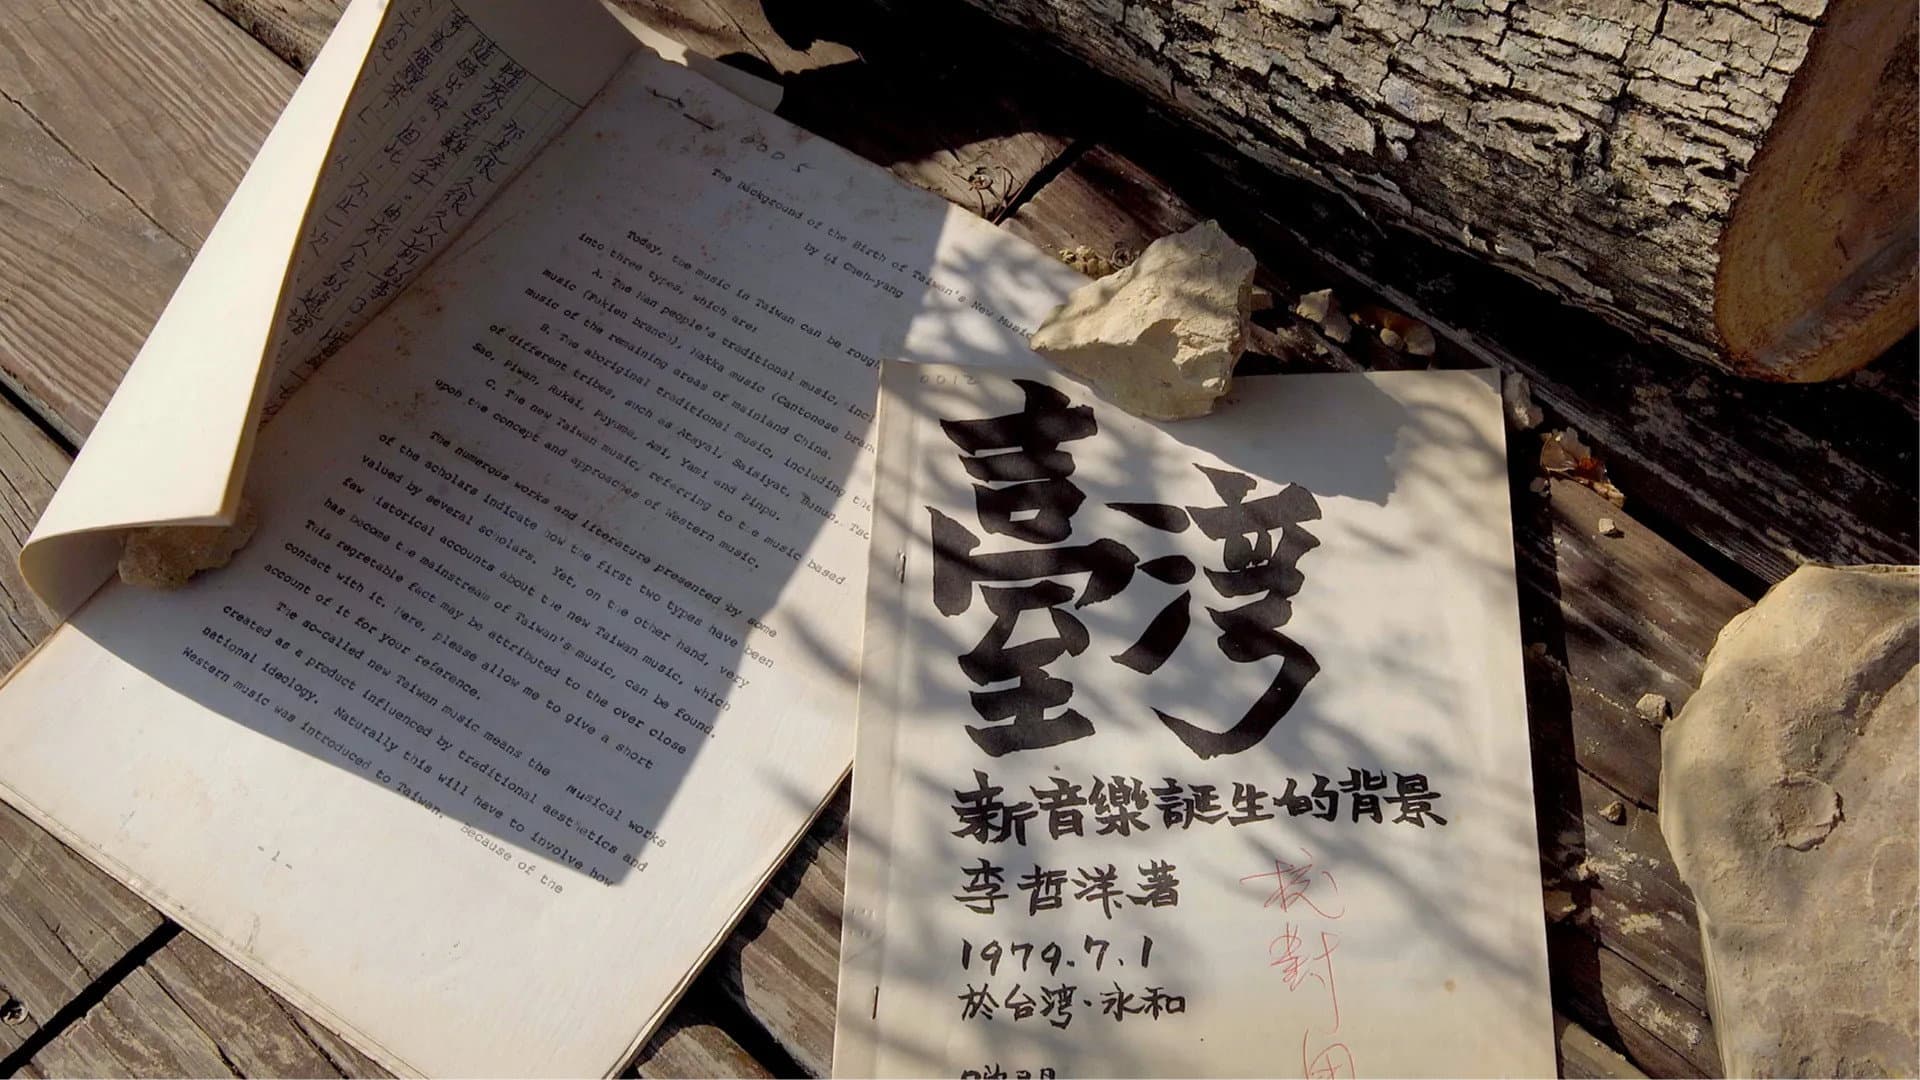 0005
The Background of the Birth of Taiwan's New Music
by Li Cheh-yang
Today, the music in Taiwan can be rough
into three types, which are:
A. The Han people's traditional music, incl
music (Fukien branch), Hakka music (Cantonese bran
music of the remaining areas of mainland China.
B. The aboriginal traditional music, including the
of different tribes, such as Atayal, Saisiyat, Bunun, Tso
Sao, Piwan, Rukai, Puyuma, Ami, Yami and Pinpu.
C. The new Taiwan music, referring to the music based
upon the concept and approaches of Western music.
The numerous works and literature presented by some
of the scholars indicate how the first two types have been
valued by several scholars. Yet, on the other hand, very
few historical accounts about the new Taiwan music, which
has become the mainstream of Taiwan's music, can be found.
This regretable fact may be attributed to the over close
contact with it. Here, please allow me to give a short
account of it for your reference.
The so-called new Taiwan music means the musical works
created as a product influenced by traditional aesthetics and
national ideology. Naturally this will have to involve how
Western music was introduced to Taiwan. Because of the
-1-
0012
臺灣
新音樂誕生的背景
李哲洋著
1979.7.1
於台湾·永和
校對用